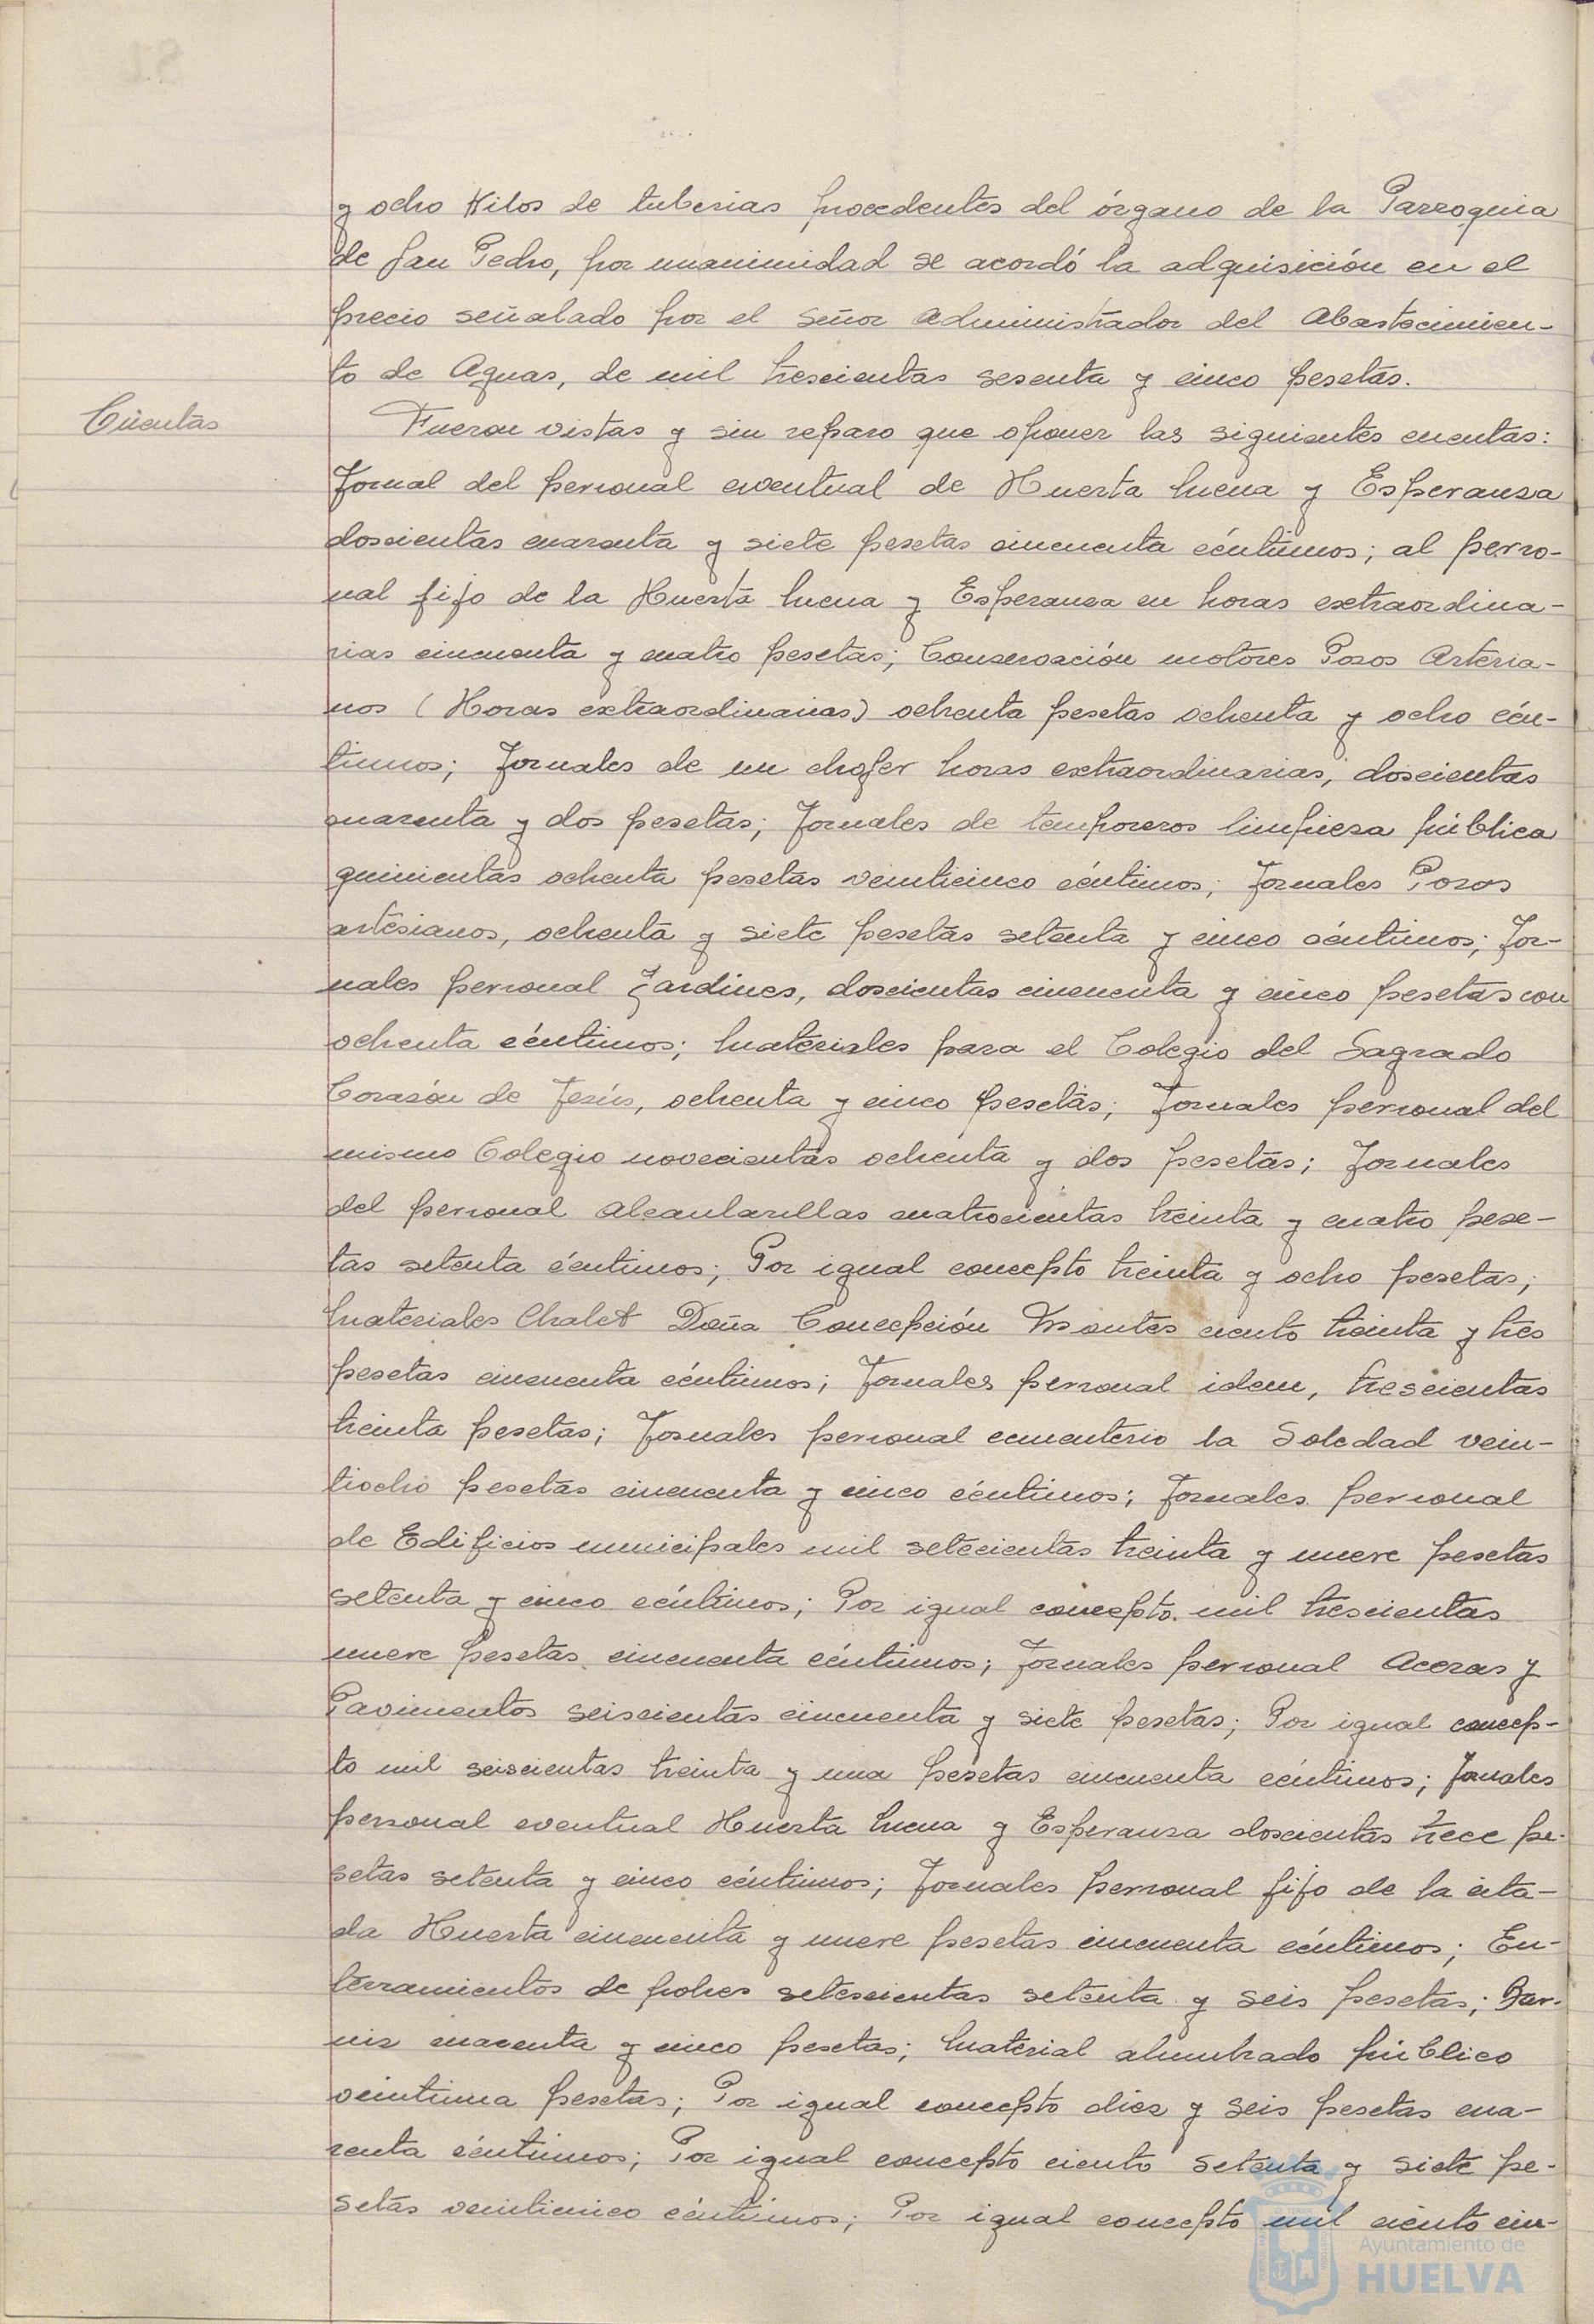 y ocho Kilos de tuberias procedentes del órgano de la Parroquia
de San Pedro, por unanimidad se acordó la adquisición en el
precio señalado por el Señor Administrador del Abastecimien-
to de Aguas, de mil trescientas sesenta y cinco pesetas.
Cuentas
Fueron vistas y sin reparo que oponer las siguientes cuentas:
Jornal del personal eventual de Huerta Mena y Esperanza
doscientas cuarenta y siete pesetas cincuenta céntimos; al perso-
nal fijo de la Huerta Mena y Esperanza en horas extraordina-
rias cincuenta y cuatro pesetas; Conservación motores Pozos Artesia-
nos (Horas extraordinarias) ochenta pesetas ochenta y ocho cén-
timos; Jornales de un chofer horas extraordinarias, doscientas
cuarenta y dos pesetas; Jornales de temporeros limpieza pública
quinientas ochenta pesetas veinticinco céntimos; Jornales Pozos
artesianos, ochenta y siete pesetas setenta y cinco céntimos; Jor-
nales personal Jardines, doscientas cincuenta y cinco pesetas con
ochenta céntimos; Materiales para el Colegio del Sagrado
Corazón de Jesús, ochenta y cinco pesetas; Jornales personal del
mismo Colegio novecientas ochenta y dos pesetas; Jornales
del personal Alcantarillas cuatrocientas treinta y cuatro pese-
tas setenta céntimos; Por igual concepto treinta y ocho pesetas;
Materiales Chalet Doña Concepción Montes ciento treinta y tres
pesetas cincuenta céntimos; Jornales personal idem, trescientas
treinta pesetas; Jornales personal cementerio la Soledad vein-
tiocho pesetas cincuenta y cinco céntimos; Jornales personal
de Edificios municipales mil setecientas treinta y nueve pesetas
setenta y cinco céntimos; Por igual concepto mil trescientas
nueve pesetas cincuenta céntimos; Jornales personal Aceras y
Pavimentos seiscientas cincuenta y siete pesetas; Por igual concep-
to mil seiscientas treinta y una pesetas cincuenta céntimos; Jornales
personal eventual Huerta Mena y Esperanza doscientas trece pe-
setas setenta y cinco céntimos; Jornales personal fijo de la cita-
da Huerta cincuenta y nueve pesetas cincuenta céntimos; En-
terramientos de pobres setescientas setenta y seis pesetas; Bar-
niz cuarenta y cinco pesetas; Material alumbrado público
veintiuna pesetas; Por igual concepto diez y seis pesetas cua-
renta céntimos; Por igual concepto ciento setenta y siete pe-
setas veinticinco céntimos; Por igual concepto mil ciento cin-
Ayuntamiento de
HUELVA